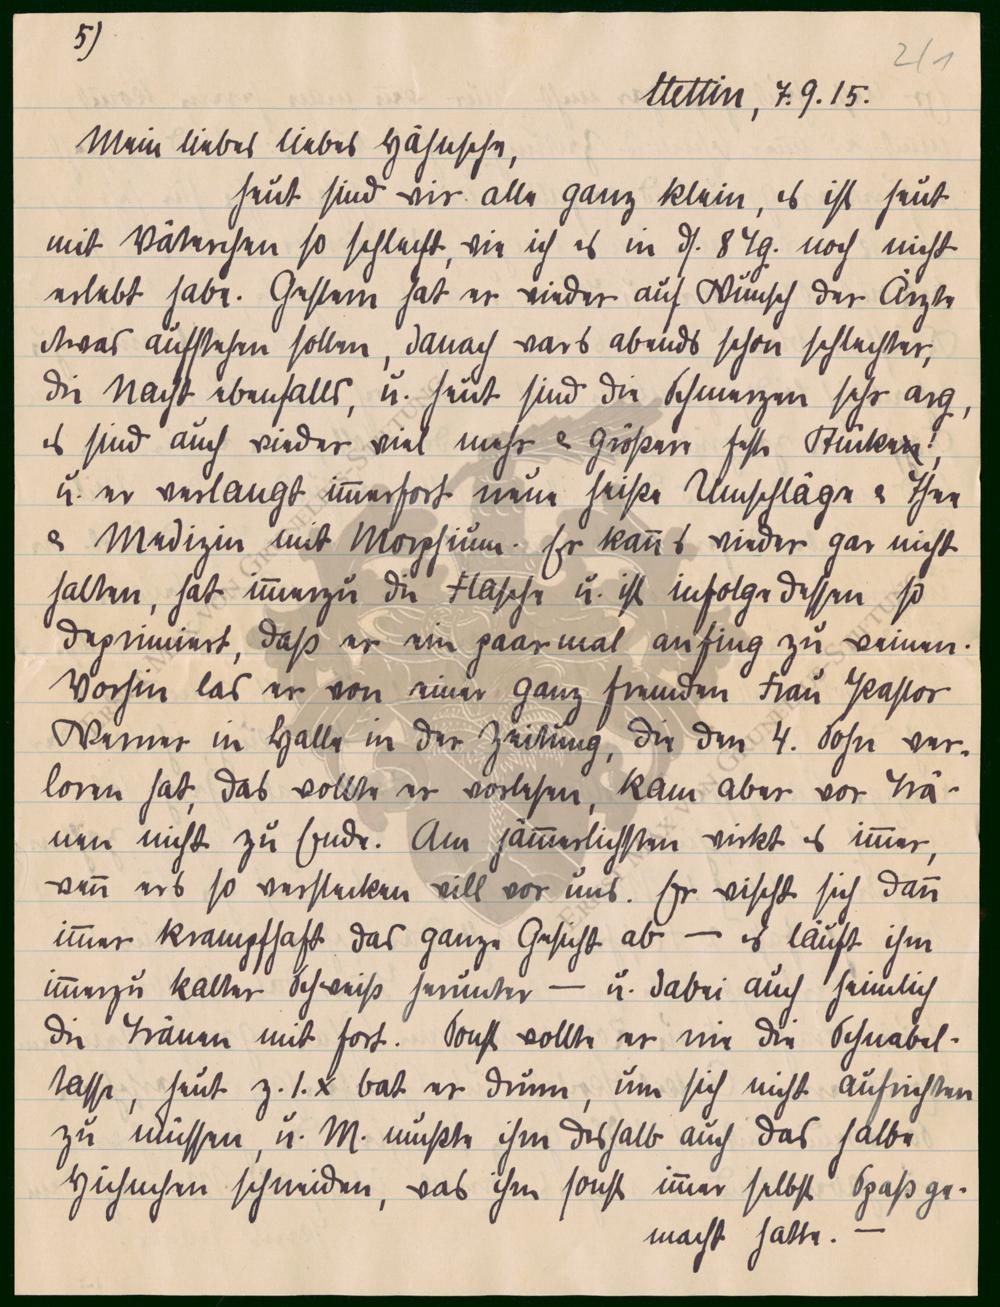 5)
2/1
Stettin, 7.9.15.
Mein liebes liebes Hähnche,
heut sind wir alle ganz klein, es ist heut
mit Väterchen so schlecht, wie ich es in ds. 8 Tg. noch nicht
erlebt habe. Gestern hat er wieder auf Wunsch der Ärzte
etwas aufstehen sollen, danach wars abends schon schlechter,
die Nacht ebenfalls, u. heut sind die Schmerzen sehr arg,
es sind auch wieder viel mehr & größere feste Stücken!,
u. er verlangt im̅erfort neue heiße Umschläge & Thee
& Medizin mit Morphium. Er kan̅s wieder gar nicht
halten, hat im̅erzu die Flasche u. ist infolgedessen so
deprimiert, daß er ein paarmal anfing zu weinen.
Vorhin las er von einer ganz fremden Frau Pastor
Werner in Halle in der Zeitung, die den 4. Sohn ver-
loren hat, das wollte er vorlesen, kam aber vor Trä-
nen nicht zu Ende. Am jäm̅erlichsten wirkt es im̅er,
wen̅ ers so verstecken will vor uns. Er wischt sich dan̅
im̅er krampfhaft das ganze Gesicht ab — es läuft ihm
im̅erzu kalter Schweiß herunter — u. dabei auch heimlich
die Tränen mit fort. Sonst wollte er nie die Schnabel-
tasse, heut z. 1. x bat er drum, um sich nicht aufrichten
zu müssen, u. M. mußte ihm deshalb auch das halbe
Hühnchen schneiden, was ihm sonst im̅er selbst Spaß ge-
macht hatte. —
VON GRUNELIUS-STIFTUNG
MAX VON GRUNELIUS-STIFTUNG